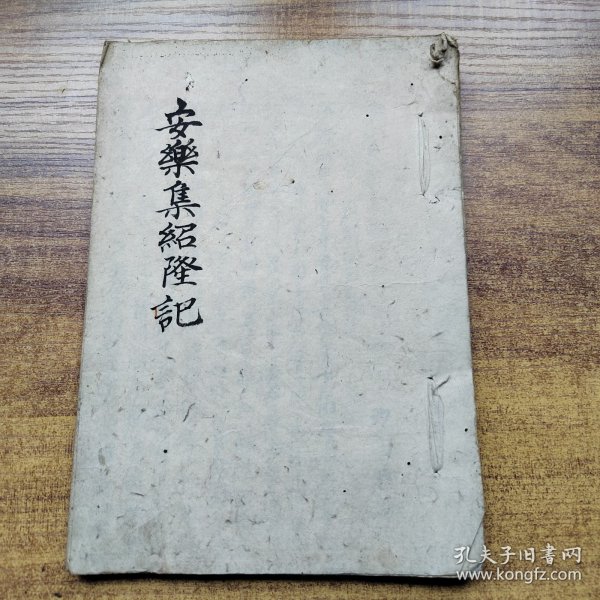 安樂集紹隆記
孔夫子旧書网
www.kongfz.com